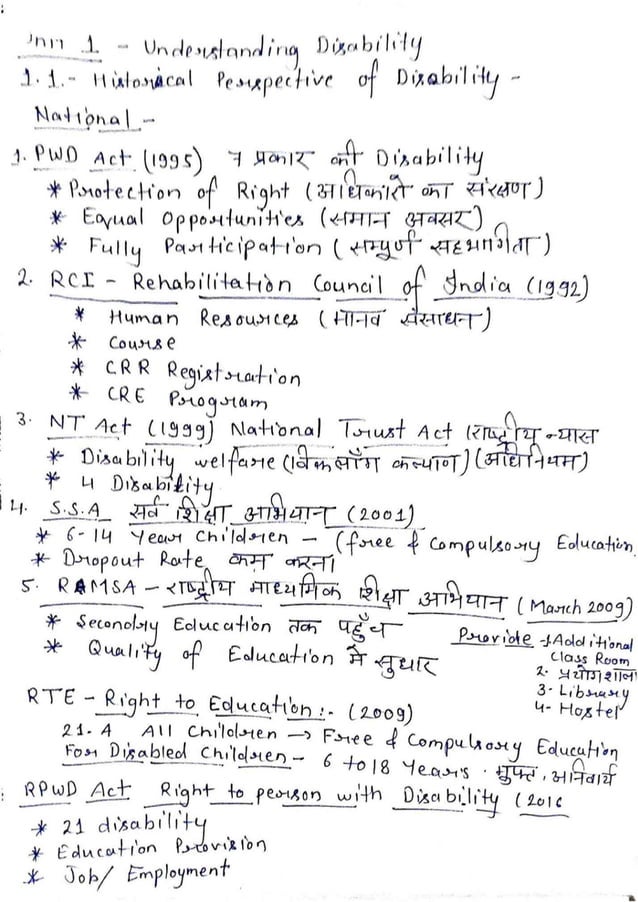 Unit 1 - Understanding Disability
1.1.- Historical Perspective of Disability -
National -
1. PWD Act (1995) 7 प्रकार की Disability
* Protection of Right (अधिकारो का संरक्षण)
* Equal Opportunities (समान अवसर)
* Fully Participation (सम्पूर्ण सहभागिता)
2. RCI - Rehabilitation Council of India (1992)
* Human Resources (मानव संसाधन)
* Course
* CRR Registration
* CRE Program
3. NT Act (1999) National Trust Act (राष्ट्रीय न्यास
* Disability welfare (विकलाँग कल्याण) (अधिनियम)
* 4 Disability
4. S.S.A सर्व शिक्षा अभियान (2001)
* 6-14 Year Children - (free & Compulsory Education
* Dropout Rate कम करना।
5. RAMSA - राष्ट्रीय माध्यमिक शिक्षा अभियान (March 2009)
* Secondry Education तक पहुँच
* Quality of Education मे सुधार
Provide - 1 Additional
Class Room
2- प्रयोगशाला
3- Library
4- Hostel
RTE - Right to Education :- (2009)
21-A All Children → Free & Compulsory Education
For Disabled Children - 6 to 18 Years. मुफ्त, अनिवार्य
RPWD Act Right to person with Disability (2016
* 21 disability
* Education Provision
* Job/ Employment